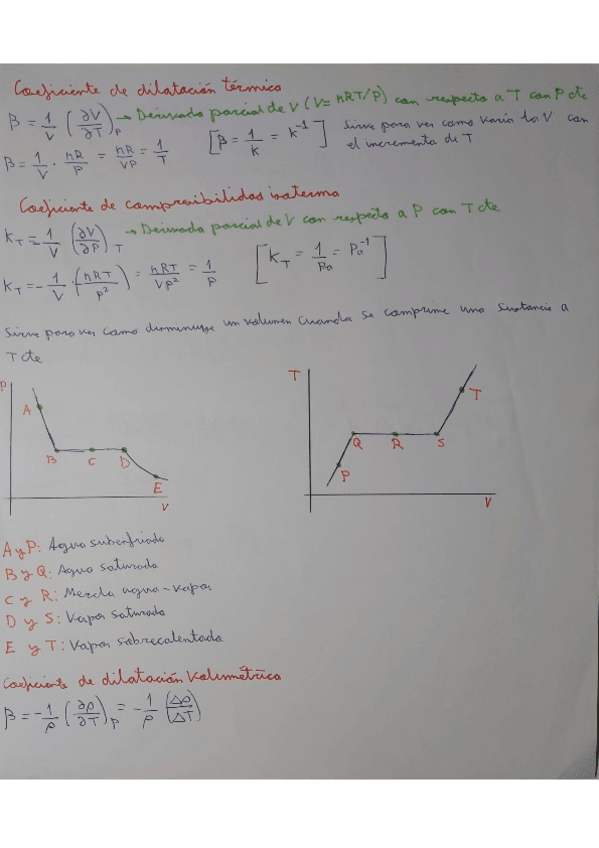 Coeficiente de dilatación térmico
β = 1/V (∂V/∂T)_P → Derivada parcial de V (V = nRT/P) con respecto a T con P cte
β = 1/V · nR/P = nR/VP = 1/T [β = 1/K = K⁻¹] Sirve para ver como varía la V con
el incremento de T
Coeficiente de compresibilidad isoterma
K_T = -1/V (∂V/∂P)_T → Derivada parcial de V con respecto a P con T cte
K_T = -1/V · (nRT/P²) = nRT/VP² = 1/P [K_T = 1/Pa = Pa⁻¹]
Sirve para ver como disminuye un volumen cuando se comprime una sustancia a
T cte
P
A
B
C
D
E
V
T
T
Q
R
S
P
V
A y P: Agua subenfriada
B y Q: Agua saturada
C y R: Mezcla agua-vapor
D y S: Vapor saturada
E y T: Vapor sobrecalentada
Coeficiente de dilatación volumétrica
β = -1/ρ (∂ρ/∂T)_P = -1/ρ (Δρ/ΔT)